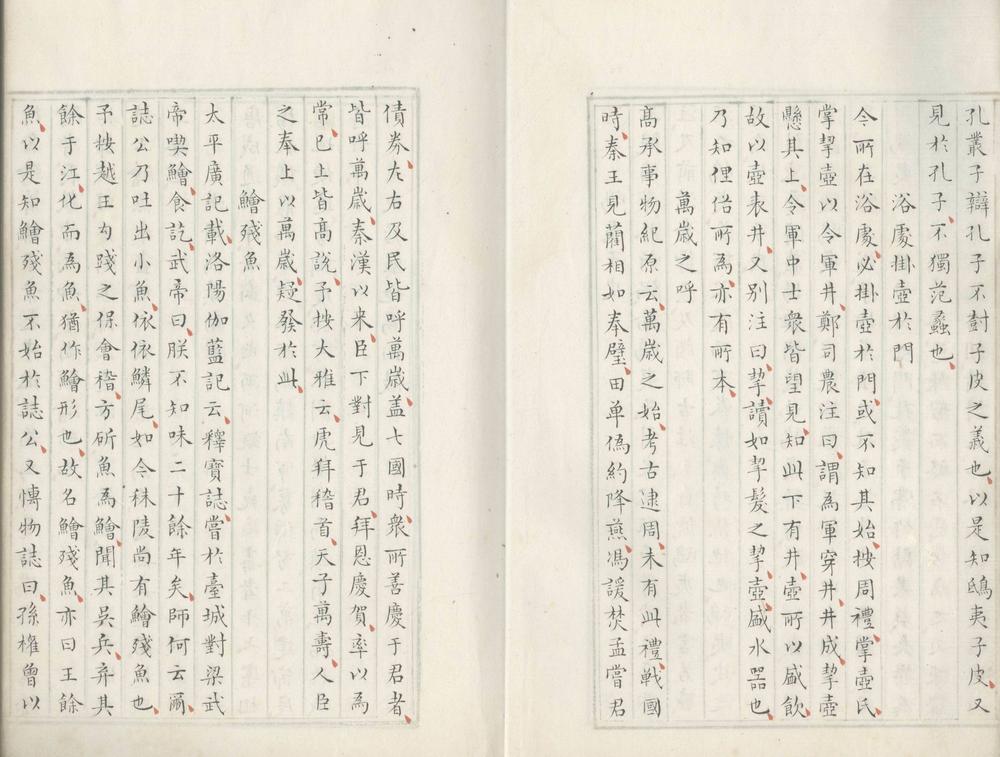 孔叢子辯孔子不對子皮之義也以是知鴟夷子皮又
見於孔子不獨范蠡也
浴處掛壺於門
今所在浴處必掛壺於門或不知其始按周禮掌壺氏
掌挈壺以令軍井鄭司農注曰謂為軍穿井井成挈壺
懸其上令軍中士衆皆望見知此下有井壺所以盛飲
故以壺表井又別注曰挈讀如挈髮之挈壺盛水器也
乃知俚俗所為亦有所本
萬歲之呼
髙承事物紀原云萬歲之始考古逮周未有此禮戰國
時秦王見藺相如奉璧田单偽約降燕馮諼焚孟嘗君
債劵左右及民皆呼萬歲盖七國時衆所善慶于君者
皆呼萬歲秦漢以来臣下對見于君拜恩慶賀率以為
常已上皆髙說予按大雅云虎拜稽首天子萬壽人臣
之奉上以萬歲疑發於此
鱠殘魚
太平廣記載洛陽伽藍記云釋寶誌嘗於臺城對梁武
帝喫鱠食訖武帝曰朕不知味二十餘年矣師何云爾
誌公乃吐出小魚依依鱗尾如今秣陵尚有鱠殘魚也
予按越王勾踐之保會稽方斫魚為鱠聞其吳兵弃其
餘于江化而為魚猶作鱠形也故名鱠殘魚亦曰王餘
魚以是知鱠殘魚不始於誌公又愽物誌曰孫權曾以